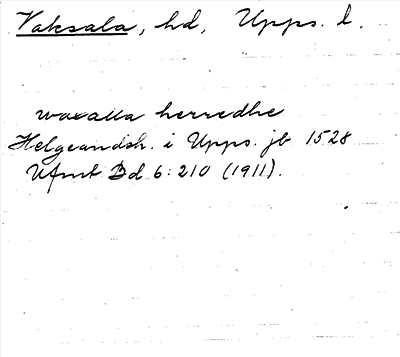 Vaksala, hd, Upps. l.
waxalla herredhe
Helgeandsh. i Upps. jb 1528
Ufmt Bd 6: 210 (1911).